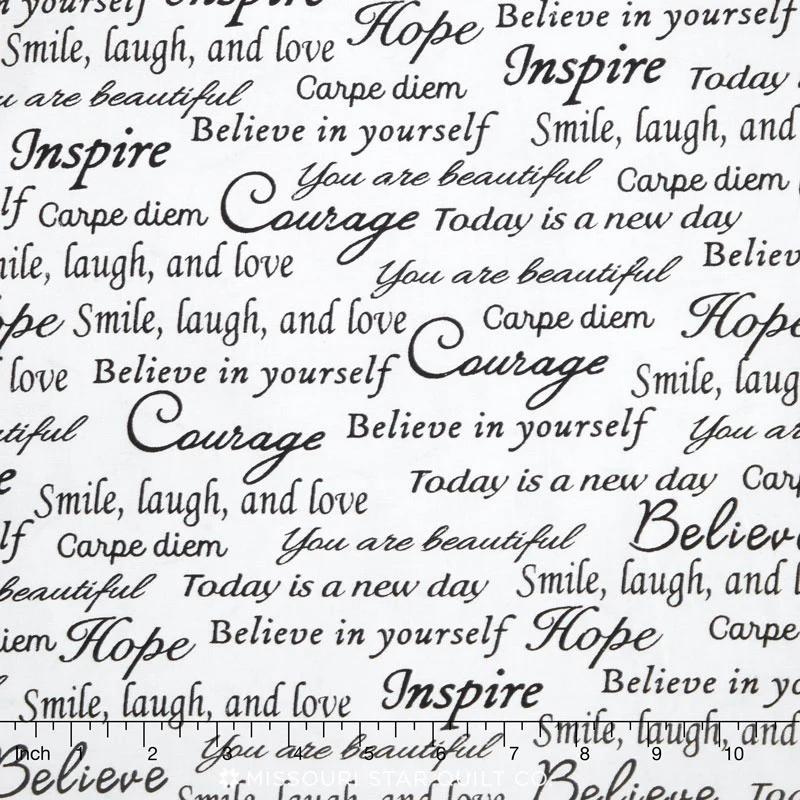 in yourself Inspire
Believe in yourself
Smile, laugh, and love Hope
Inspire Today
are beautiful Carpe diem
Believe in yourself Smile, laugh, and
Inspire
You are beautiful Carpe diem
Carpe diem Courage Today is a new day
laugh, and love You are beautiful
Smile, laugh, and love Carpe diem Hope
love Believe in yourself Courage Smile,
Courage Believe in yourself You
Today is a new day
Smile, laugh, and love
Carpe diem You are beautiful Believe
beautiful Today is a new day Smile, laugh, and
Hope Believe in yourself Hope Carpe
Smile, laugh, and love Inspire Believe in
Smile, laugh, and
Inch 1 2 3 4 5 6 7 8 9 10
You are beautiful
Believe MISSOURI STAR QUILT CO. Believe
Smile, laugh, and love